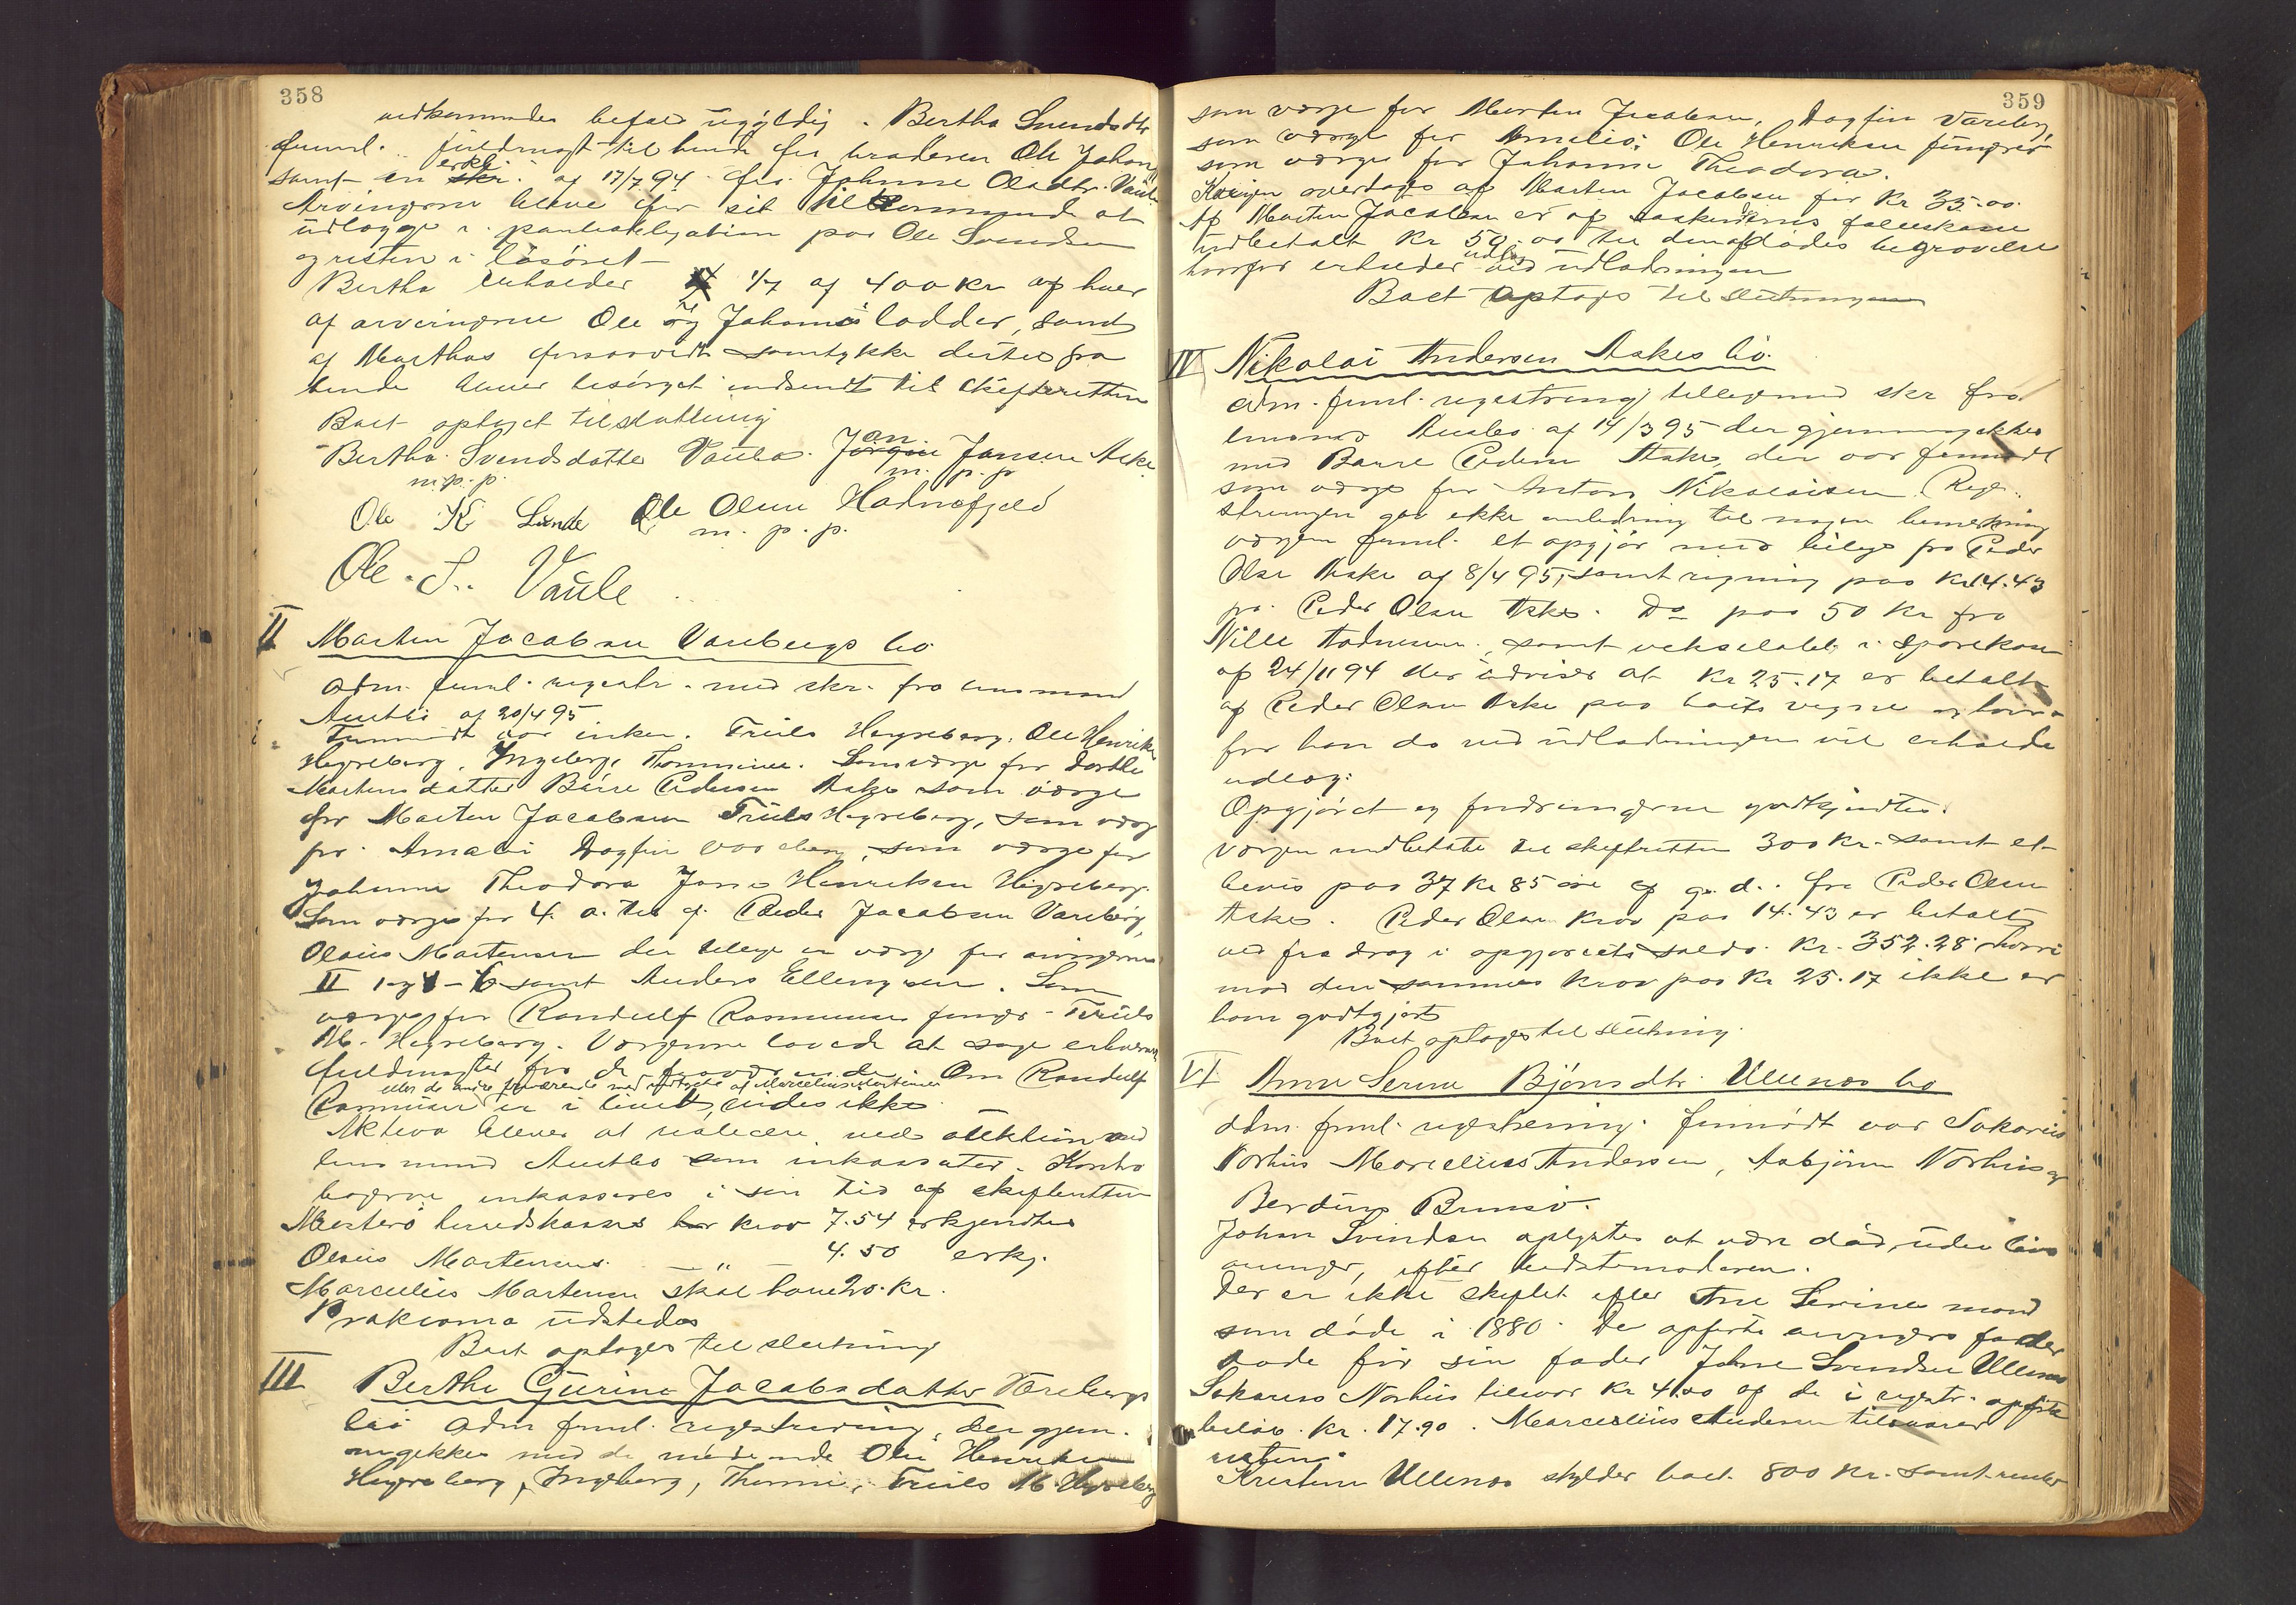 358
vedkommendes befales ugyldig. Bertha Svendsdtr
freml. fuldmagt til hende fra broderen Ole Johan
samt en erkl. af 17/7 94 fra Johanne Olsdtr. Vaule
Arvingerne bleve for sit tilkommende at
udlægge i panteobligation paa Ole Svendsen
og resten i løsøret
Bertha erholder 1/7 af 400 Kr af hver
af arvingerne Ole og Johannes lodder, samt
af Marthas forsaavidt samtykke dertil fra
hende bliver besørget indsendt til skifteretten
Boet optaget til slutning
Bertha Svendsdatter Vaula. Jan Jansen Aske
m.p.p. m. p. p
Ole K Lunde Ole Olsen Hadnefjeld
m. p. p.
Ole. S. Vaule
II Morten Jacobsen Varebergs bo
adm. freml. registr. med skr. fra lensmand
Austbø af 20/4 95
Fremmødt var enken. Truls Høyreberg. Ole Henriksen
Høyreberg, Ingeborg, Thomine. Som værge for Dorthe
Martensdatter Bårre Pedersen Aske som værge
for Morten Jacobsen Truls Høyreberg, som værge
for Amalie Dagfin Vareberg, som værge for
Johanne Theodora Jons Henriksen Høyreberg.
Som værge for 4. a. til g. Peder Jacobsen Vareberg,
Olaus Martensen der tillige er værge for arvingerne
II 1 og 4 - 6 samt Anders Ellingsen. Som
værge for Randulf Rasmussen funger. Truls
M. Høyreberg. Værgerne lovede at søge erhverve
fuldmagter fra de fraværende. Om Randulf
eller de andre fraværende med undtagelse af Marcelius Martinsen
Rasmussen er i livet, vides ikke.
Aktiva bliver at realisere ved auktion med
lensmand Austbø som inkassator. Kontra
bøgerne inkasseres i sin tid af skifteretten
Mosterø herredskasses krav 7.54 erkjendtes
Olaus Martensens — " — 4.50 erkj.
Marcelius Martensen skal have 20. Kr.
Proklama udstedes
Boet optages til slutning
III Berthe Gurine Jacobsdatter Varebergs
bo adm freml. registrering, der gjen-
nemgikkes med de mødende Ole Henriksen
Høyreberg, Ingeborg, Thomine, Truls M. Høyreberg
359
som værge for Morten Jacobsen, Dagfin Vareberg,
som værge for Amalie; Ole Henriksen fungerer
som værge for Johanne Theodora.
Køien overtages af Morten Jacobsen for Kr 35.00.
Af Morten Jacobsen er af søskendernes fælleskasse
udbetalt Kr 50.00 til den afdødes begravelse
hvorfor erholder udlæg ved udlodningen
Boet optages til slutningen
IV Nikolai Andersen Askes bo.
adm. freml. registrering tilligemed skr fra
lensmand Austbø af 14/3 95 der gjennemgikkes
med Baarre Pedersen Aske, der var fremmødt
som værge for Anton Nikolaisen. Regi-
streringen gav ikke anledning til nogen bemerkning
værgen freml. et opgjør med bilag fra Peder
Olsen Aske af 8/4 95, samt regning paa Kr 14.43
fra Peder Olsen Aske. Do paa 50 Kr fra
Nille Andersen, samt veksel i Sparekassen
af 24/11 94 der udviser at Kr 25.17 er betalt
af Peder Olsen Aske paa boets vegne og hvor-
for han da ved udlodningen vil erholde
udlæg.
Opgjøret og fordringerne godkjendtes.
Værgen indbetalte til skifteretten 300 Kr. samt et
bevis paa 37 Kr 85 øre af g. d. fra Peder Olsen
Aske. Peder Olsens krav paa 14.43 er betalt
ved fradrag i opgjørets saldo. Kr. 352.28 hvori
mod den sammes krav paa Kr 25.17 ikke er
ham godtgjort
Boet optages til slutning.
VI Anne Serine Bjørnsdtr. Ullenæs bo
adm. freml. registrering. fremmødt var Sakarias
Norhus Marcelius Andersen, Asbjørn Norhus og
Berdines Brunsø.
Johan Svendsen oplystes at være død uden livs
arvinger, efter stedmoderen.
Der er ikke skiftet efter Ane Serines mand
som døde i 1880. De opførte arvingers fader
døde før sin fader Johan Svendsen Ullenes
Sakarias Norhus tilsvarer Kr 4.00 af de i registr. opførte
beløb. Kr. 17.90. Marcelius Andersen tilsvarer
resten.
Kristine Ullenæs skylder boet 800 Kr. samt renter